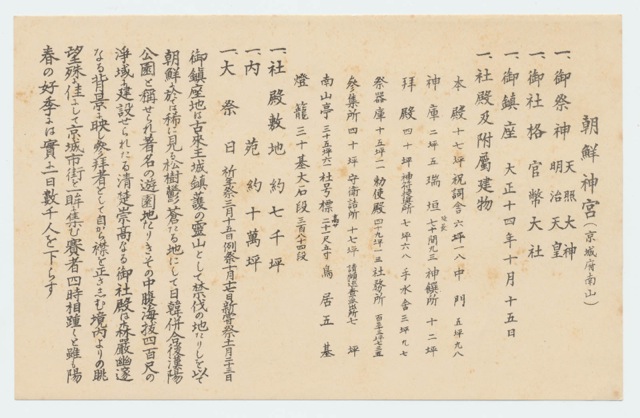 朝鮮神宮(京城府南山)
一、御祭神 天照大神 明治天皇
一、御社格 官幣大社
一、御鎮座 大正十四年十月十五日
一、社殿及附屬建物
本殿 十七坪 祝詞舍 六坪一八 中門 五坪九八
神庫 二坪五 瑞垣 七十間 神饌所 十二坪
拜殿 四十坪 七坪六八 手水舍 三坪九七
祭器庫 十五坪二 勅使殿 四十九坪一三 社務所
參集所 四十坪 守衛詰所 十七坪 七坪
南山亭 三十五坪六 社号標 鳥居 五基
燈籠 三十基 大石段 三百八十四段
一、社殿敷地 約七千坪
一、内苑 約十萬坪
一、大祭日 祈年祭三月十五日 例祭十月十七日 新嘗祭十一月二十三日
御鎮座地は古來王城鎮護の靈山として禁伐の地たりしを以て
朝鮮に於ては稀に見る松樹鬱蒼たる地にして日韓併合後漢陽
公園と稱せられ著名の遊園地たりき その中腹海抜四百尺の
淨域に建設せられたる清楚崇高なる御社殿は森嚴幽邃
なる背景に映し參拜者として自から襟を正さしむ 境内よりの眺
望殊に佳にして京城市街を一眸に集む 賽者四時相踵くと雖も陽
春の好季には實に一日數千人を下らす